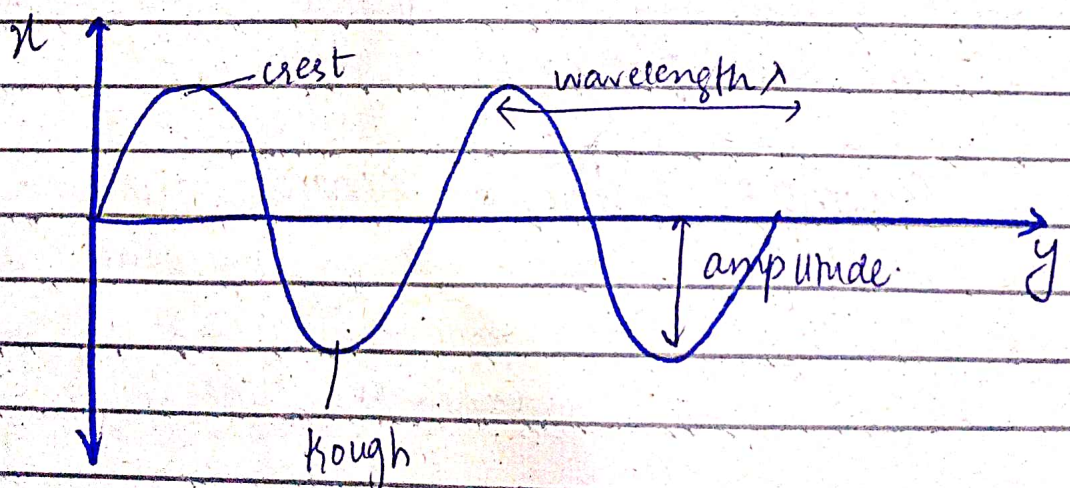 x
crest
wavelength λ
amplitude.
y
trough